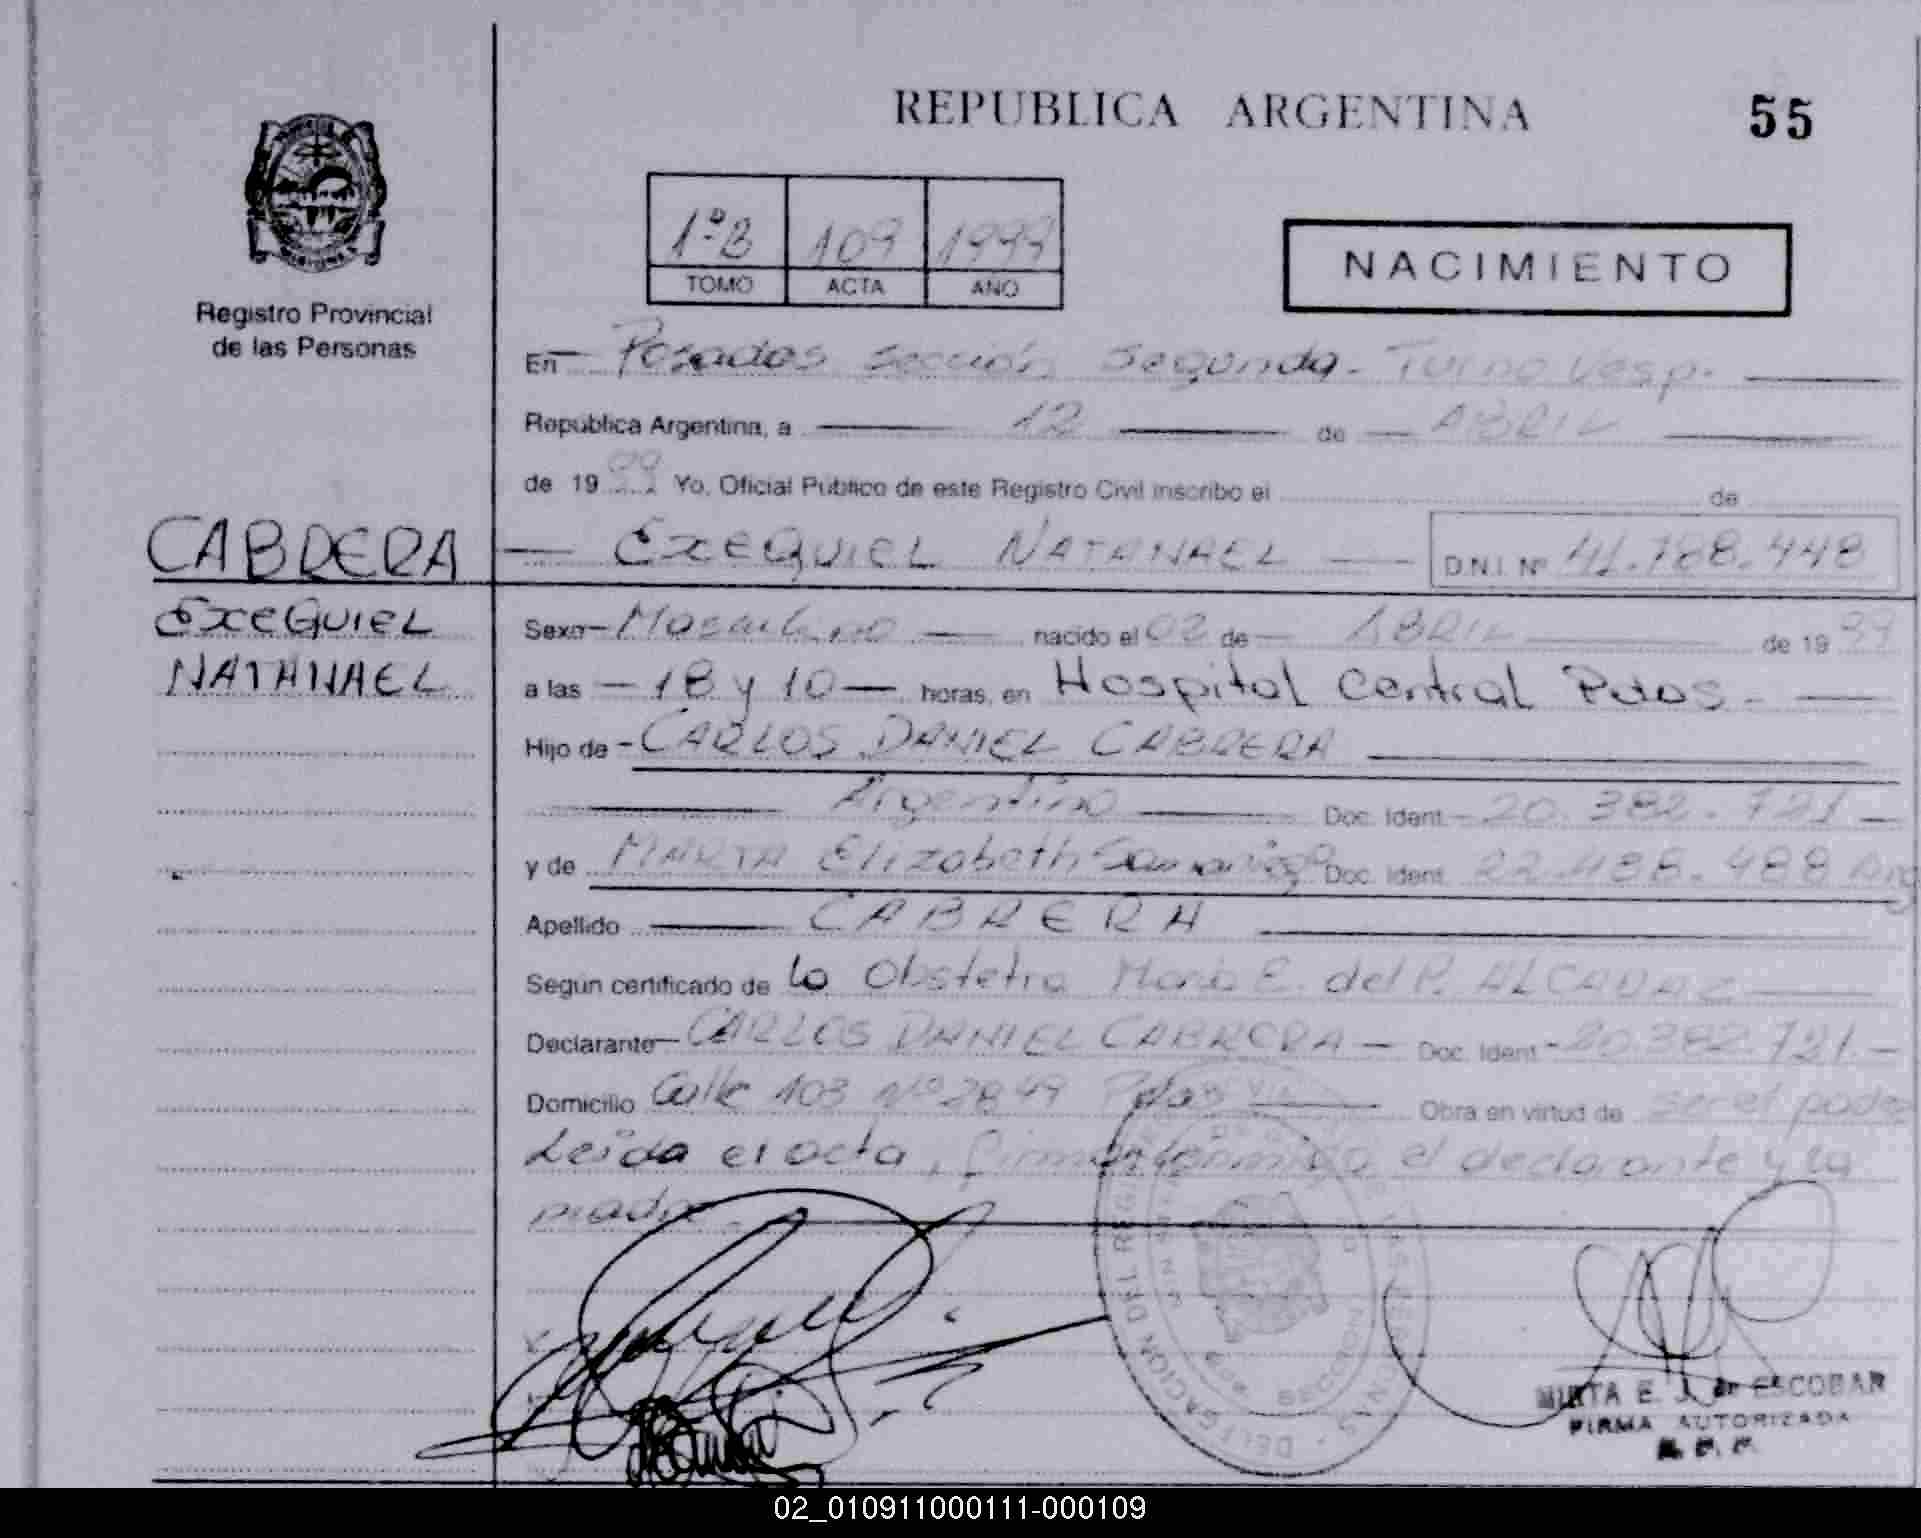 REPUBLICA ARGENTINA
55
1º B 109 1999
TOMO ACTA AÑO
NACIMIENTO
Registro Provincial
de las Personas
En Posadas sección Segunda. Turno Vesp.
República Argentina, a 12 de ABRIL
de 1999 Yo, Oficial Público de este Registro Civil inscribo el de
CABRERA EXEQUIEL NATANAEL D.N.I. Nº 41.788.448
EXEQUIEL
NATANAEL
Sexo Masculino nacido el 02 de ABRIL de 1999
a las 18 y 10 horas, en Hospital Central Pdas.
Hijo de CARLOS DANIEL CABRERA
Argentino Doc. Ident. 20.382.721
y de MARTA Elizabeth Samaniego Doc. Ident. 22.488.488 Arg
Apellido CABRERA
Según certificado de la Obstetra María E. del P. ALCARAZ
Declarante CARLOS DANIEL CABRERA Doc. Ident 20.382.721.
Domicilio Calle 103 Nº 2849 Pdas Obra en virtud de ser el padre
Leída el acta, firman conmigo el declarante y la
madre.
DELEGACION DEL REGISTRO
SECCION
MIRTA E. J. de ESCOBAR
FIRMA AUTORIZADA
R. P. P.
02_010911000111-000109